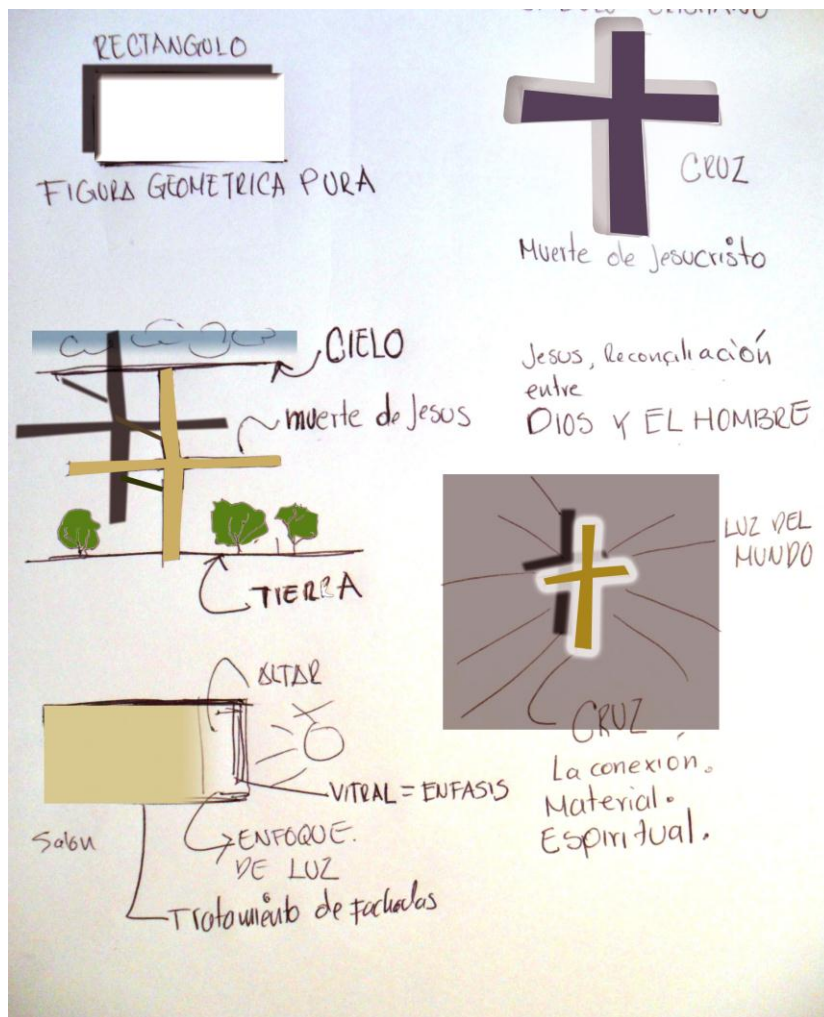 RECTANGULO
FIGURA GEOMETRICA PURA
CRUZ
Muerte de Jesucristo
CIELO
muerte de Jesus
TIERRA
Jesus, Reconciliación
entre
DIOS Y EL HOMBRE
LUZ DEL
MUNDO
CRUZ
La conexión.
Material.
Espiritual.
ALTAR
VITRAL = ENFASIS
Salon
ENFOQUE.
DE LUZ
Tratamiento de fachadas